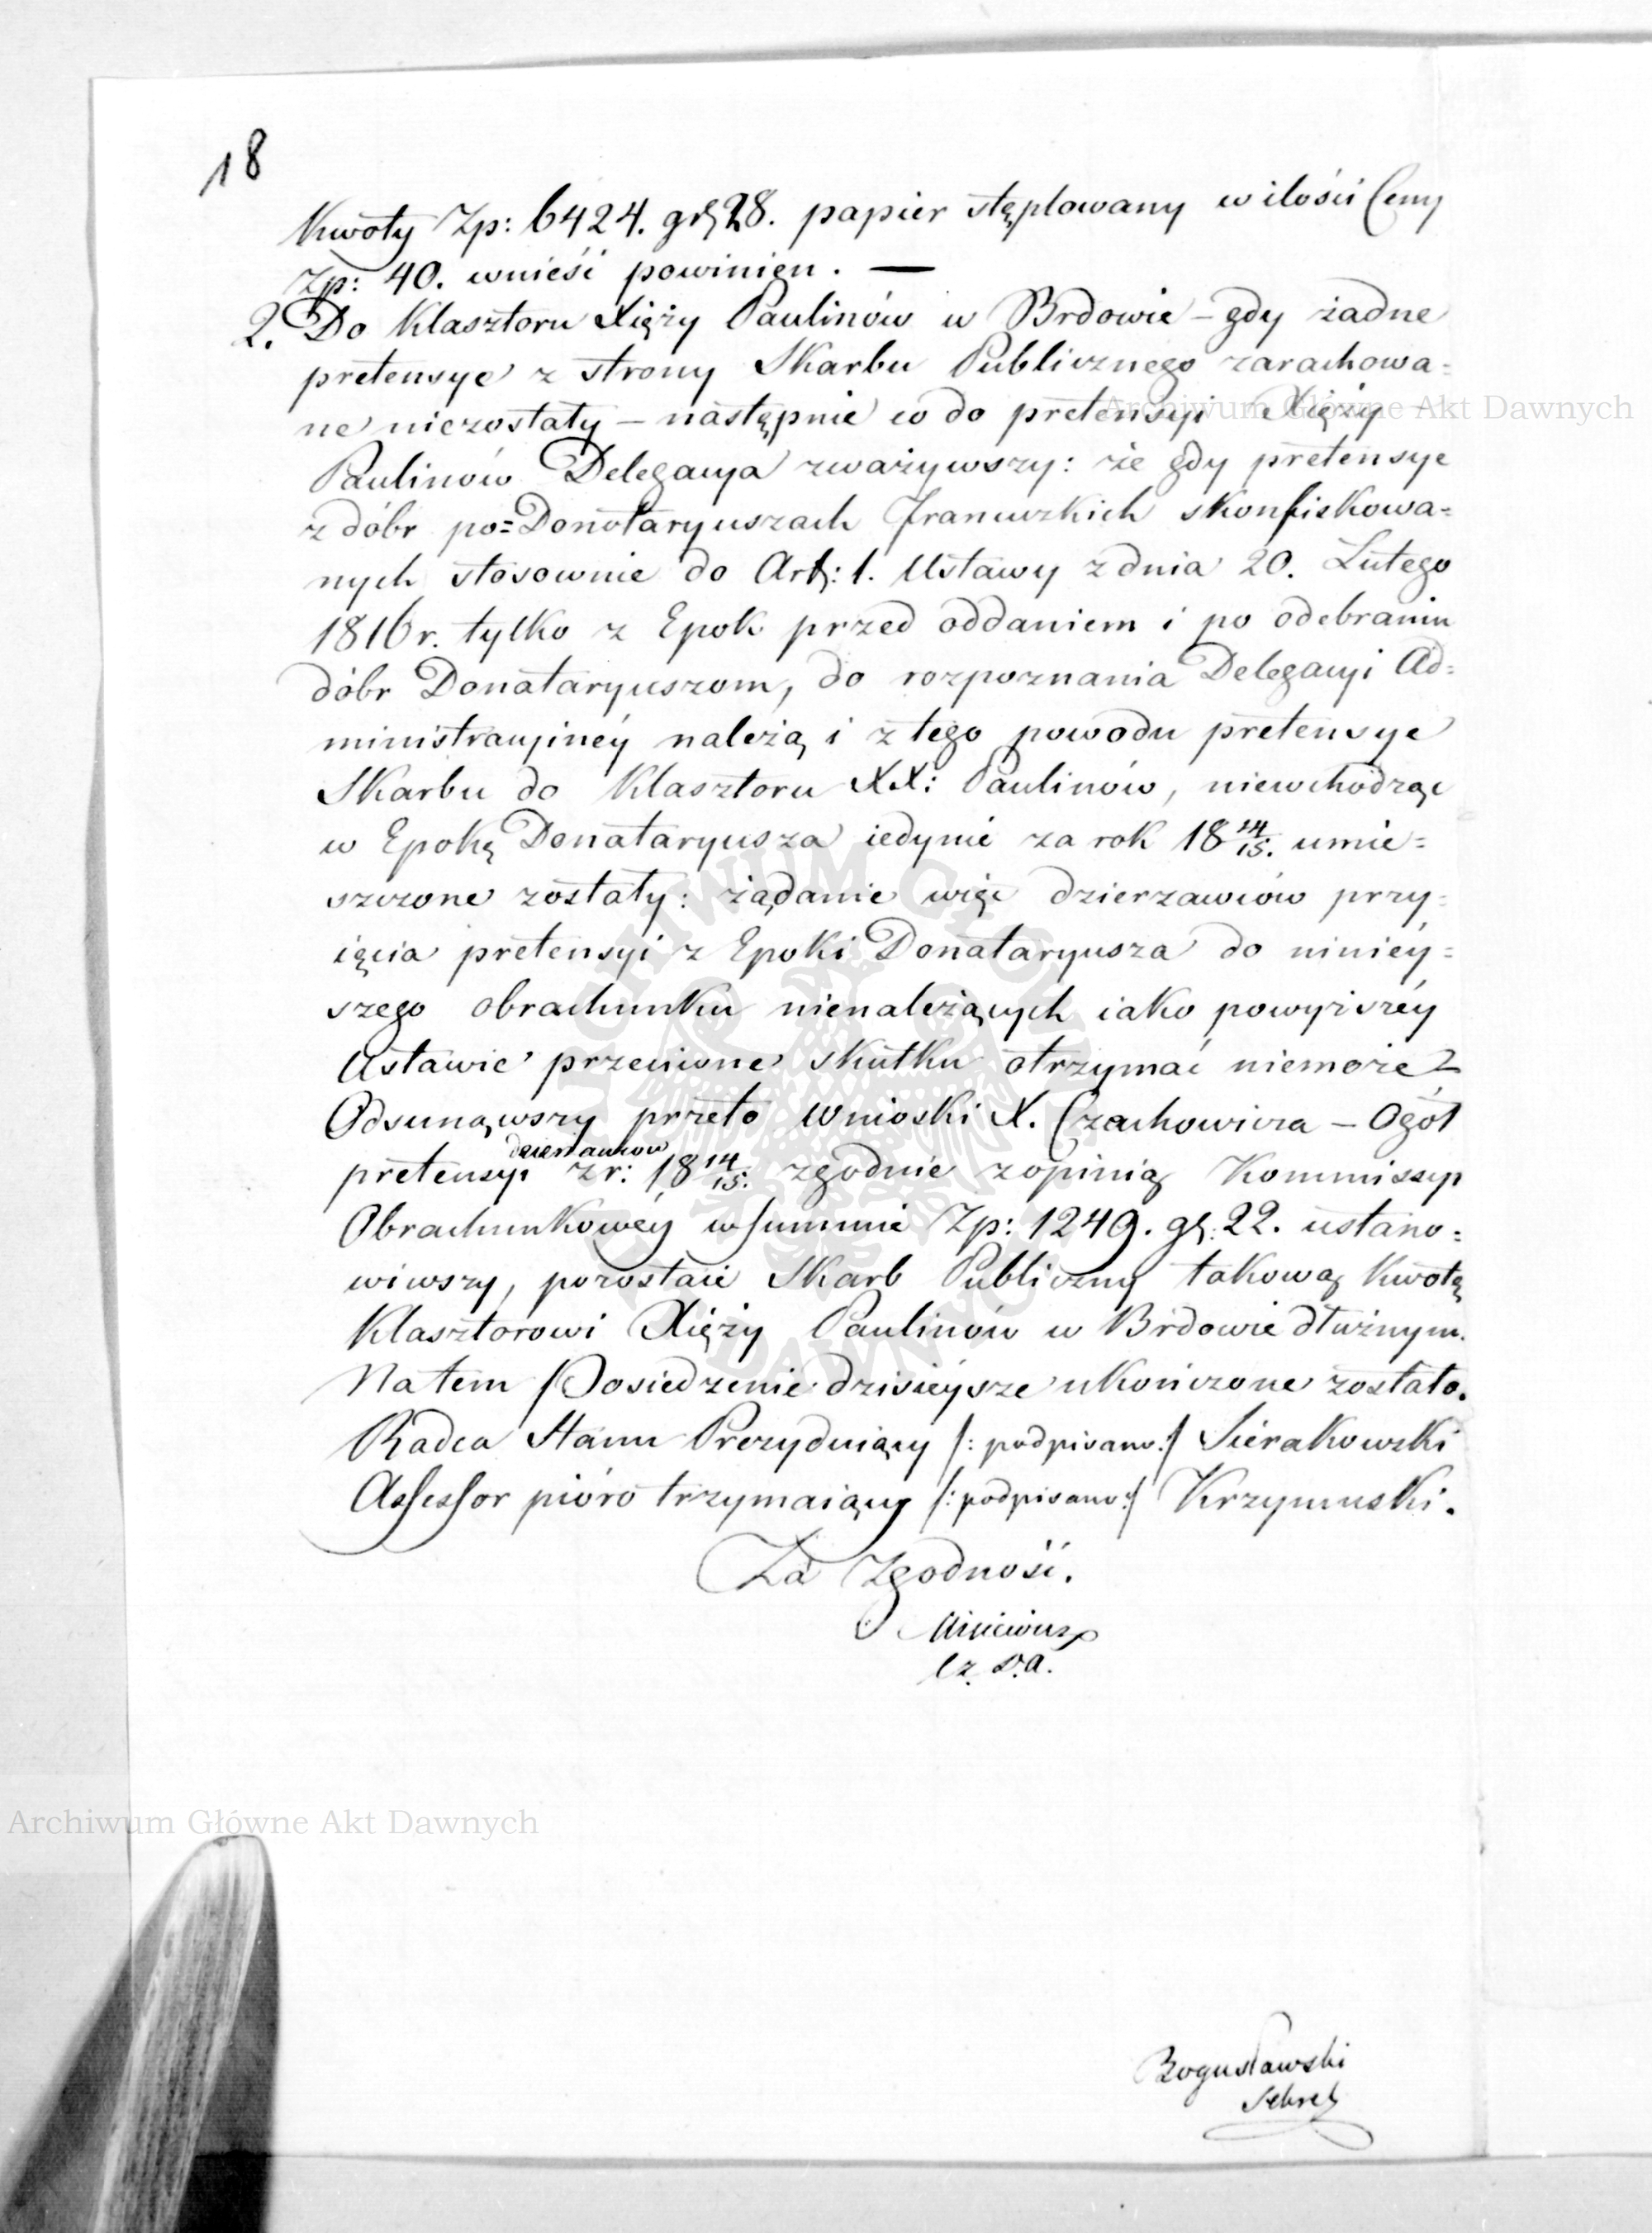 18
Kwoty Zp: 6424. gr 28. papier stęplowany w ilości Ceny
Zp: 40. wnieść powinien. —
2. Do Klasztoru Xięży Paulinów w Brdowie – gdy żadne
pretensye z strony Skarbu Publicznego zarachowa=
ne niezostały – następnie co do pretensyi Xięży –
Paulinów Delegacya zważywszy: że gdy pretensye
z dóbr po=Donotaryuszach Francuzkich skonfiskowa=
nych stosownie do Art: 1. Ustawy z dnia 20. Lutego
1816 r. tylko z Epok przed oddaniem i po odebraniu
dóbr Donataryuszom, do rozpoznania Delegacyi Ad=
ministracyinéy należą i z tego powodu pretensye
Skarbu do Klasztoru XX: Paulinów, niewchodząc
w Epokę Donataryusza iedynie za rok 18 14/15. umie=
szczone zostały: żądanie więc dzierzawców przy=
ięcia pretensyi z Epoki Donataryusza do niniéy=
szego obrachunku nienależących iako powyższéy
Ustawie przeciwne skutku otrzymać niemoże
Odsunąwszy przeto Wnioski X. Czachowicza – Ogół
dzierzawców
pretensyi z r: 18 14/15. zgodnie z opinią Kommissyi
Obrachunkowéy w summie Zp: 1249. gr: 22. ustano=
wiwszy, pozostaie Skarb Publiczny takową Kwotę
Klasztorowi Xięży Paulinów w Brdowie dłużnym.
Na tem Posiedzenie dzisiéysze ukończone zostało.
Radca Stanu Prezyduiący /: podpisano :/ Sierakowski
Assessor pióro trzymaiący /: podpisano :/ Krzymuski.
Za Zgodność.
Cz. D. A.
Bogusławski
Sekret
Archiwum Główne Akt Dawnych
Archiwum Główne Akt Dawnych
ARCHIWUM GŁÓWNE AKT DAWNYCH